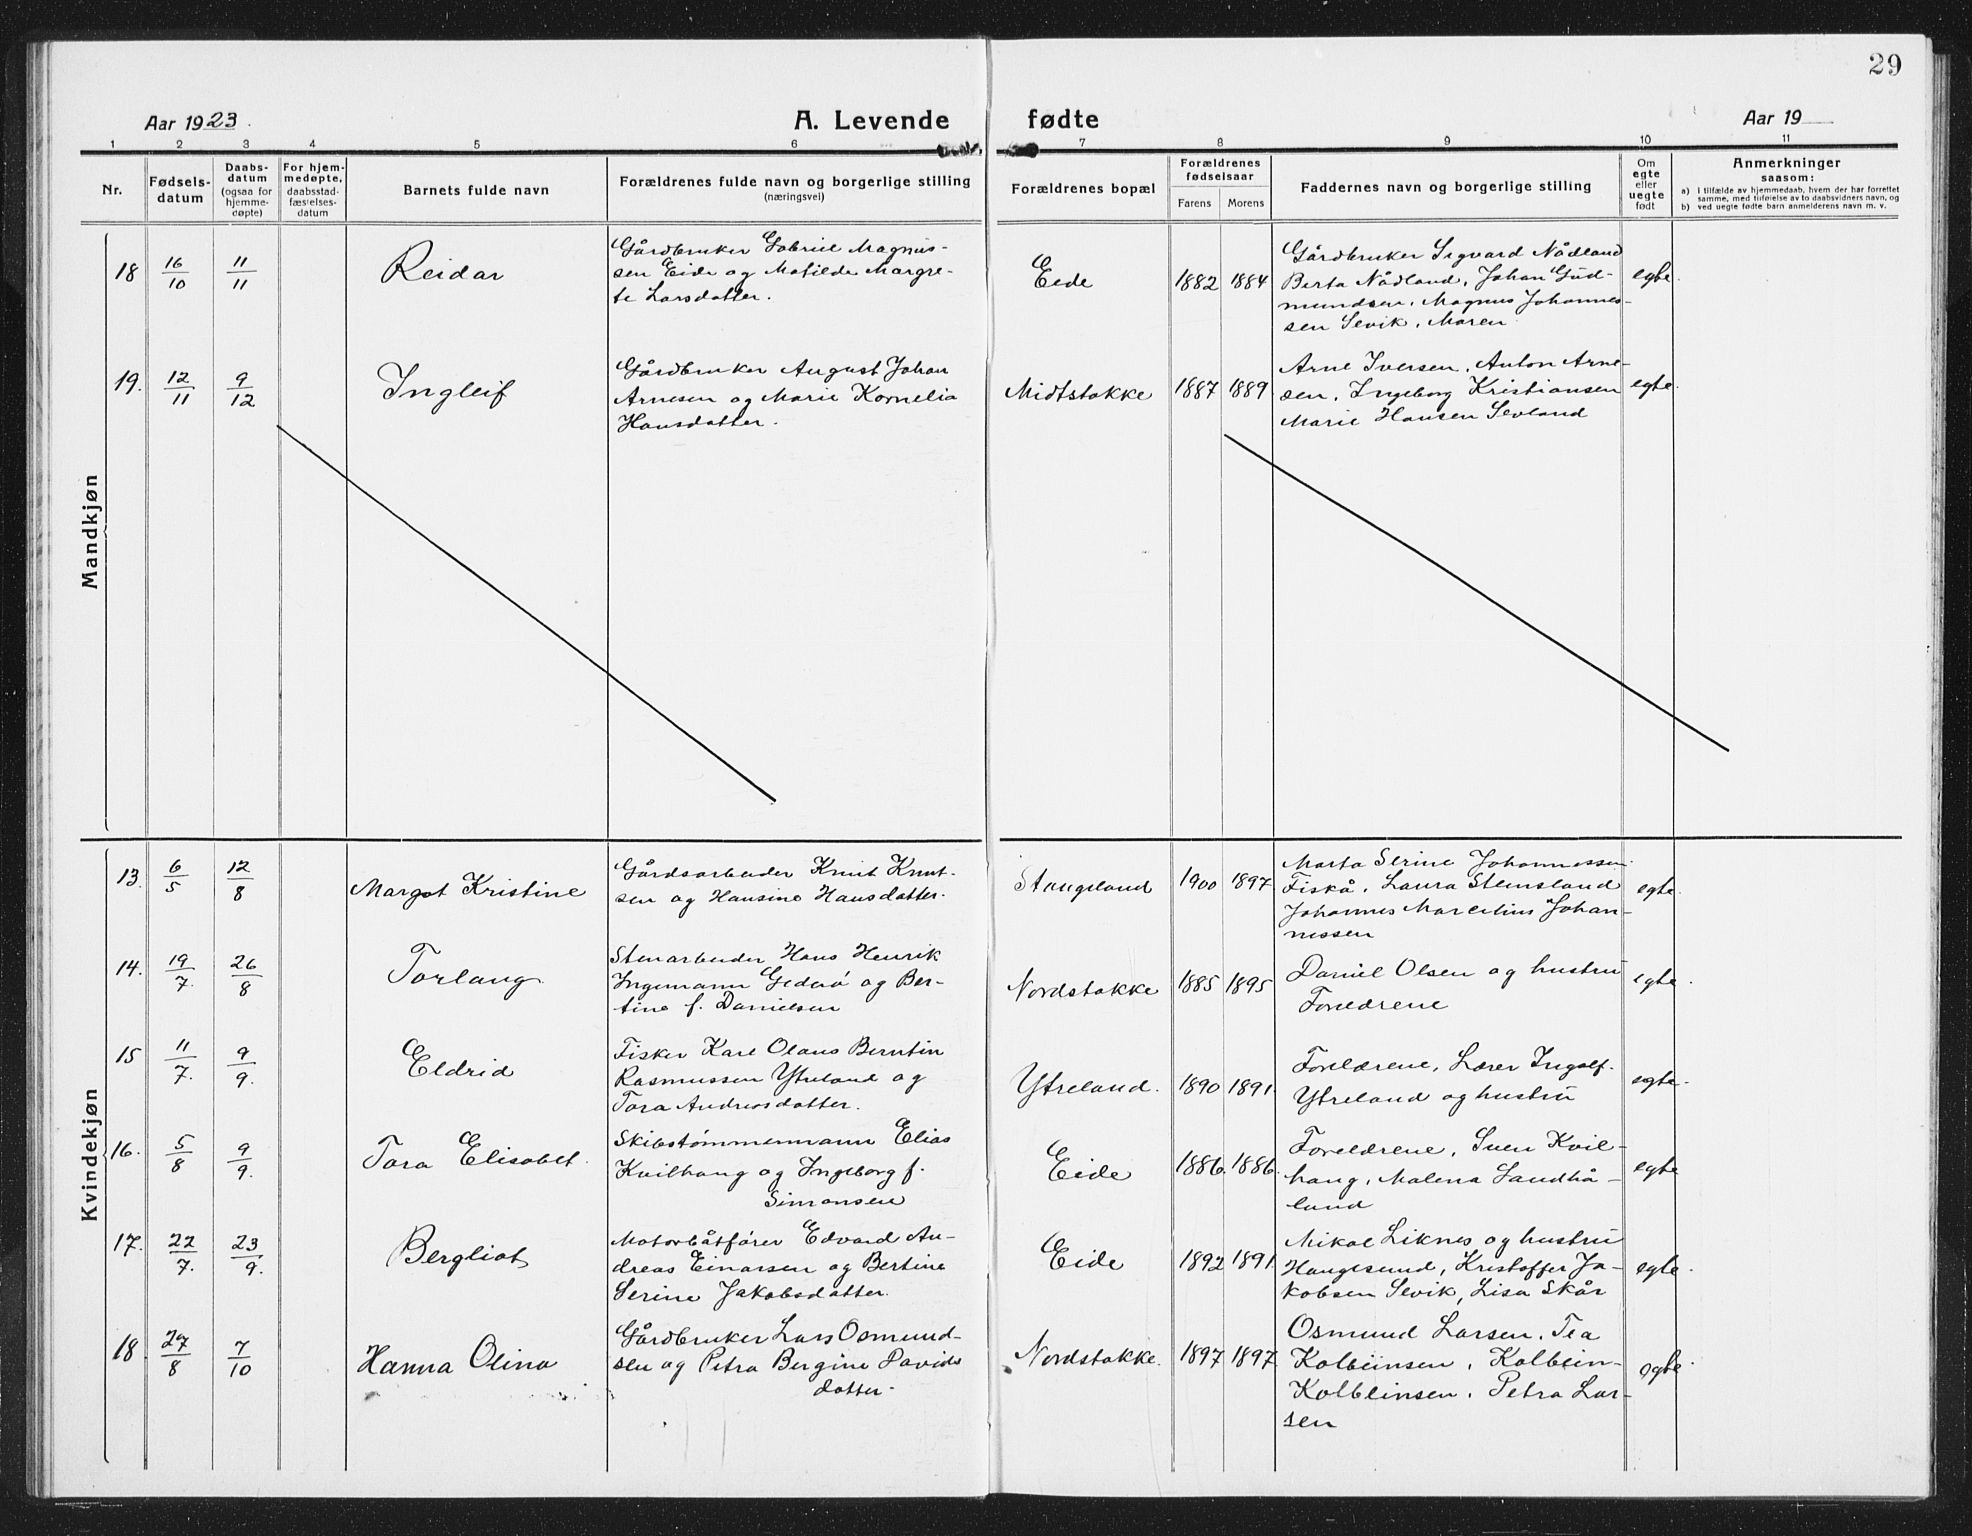 29
Aar 1923.
A. Levende fødte
Aar 19
1 2 3 4 5 6 7 8 9 10 11
Nr.
Fødsels-
datum
Daabs-
datum
(ogsaa for
hjemme-
døpte)
For hjem-
medøpte,
daabsstad-
fæstelses-
datum
Barnets fulde navn
Forældrenes fulde navn og borgerlige stilling
(næringsvei)
Forældrenes bopæl
Forældrenes
fødselsaar
Farens Morens
Faddernes navn og borgerlige stilling
Om
egte
eller
uegte
født
Anmerkninger
saasom:
a) i tilfælde av hjemmedaab, hvem der har forrettet
samme, med tilføielse av to daabsvidners navn, og
b) ved uegte fødte barn anmelderens navn m. v.
Mandkjøn
18 16/10 11/11 Reidar
Gårdbruker Gabriel Magnus-
sen Eide og Matilde Margre-
te Larsdatter.
Eede 1882 1884
Gårdbruker Sigvard Nådland
Berta Nådland, Johan Gud-
mundsen, Magnus Johannes-
sen Sevik, Maren
egte.
19. 12/11 9/12 Ingleif
Gårdbruker August Johan
Arnesen og Marie Kornelia
Hansdatter.
Midtstokke 1887 1889
Arne Iversen, Anton Arne-
sen, Ingeborg Kristiansen
Marie Hansen Sevland
egte.
Kvindekjøn
13. 6/5 12/8 Margot Kristine
Gårdsarbeider Knut Knut-
sen og Hansine Hansdatter.
Stangeland 1900 1897
Marta Serine Johannessen
Fiskå, Laura Stensland
Johannes Marcelius Johan-
nessen
egte.
14. 19/7. 26/8 Torlaug
Stenarbeider Hans Henrik
Ingemann Gederö og Ber-
tine f. Danielsen
Nordstokke 1885 1895
Daniel Olsen og hustru
Foreldrene
egte.
15 11/7. 9/9. Eldrid
Fisker Karl Olaus Berntin
Rasmussen Ytreland og
Tora Andreasdatter.
Ytreland. 1890 1891.
Foreldrene, Lærer Ingolf
Ytreland og hustru
egte.
16. 5/8 9/9. Tora Elisabet.
Skibstømmermann Elias
Kvilhaug og Ingeborg f.
Simonsen
Eide 1886. 1886.
Foreldrene, Sven Kvil-
haug, Malena Sandhå-
land
egte
17. 22/7. 23/9. Bergliot
Motorbåtfører Edvard An-
dreas Einarsen og Bertine
Serine Jakobsdatter.
Eide 1892 1891.
Mikal Liknes og hustru
Haugesund, Kristoffer Ja-
kobsen Sevik, Lisa Skår
egte.
18. 27/8 7/10 Hanna Olina
Gårdbruker Lars Osmund-
sen og Petra Bergine Davids
datter.
Nordstokke. 1897 1897.
Osmund Larsen, Tea
Kolbeinsen, Kolbein-
Kolbeinsen, Petra Lar-
sen
egte.